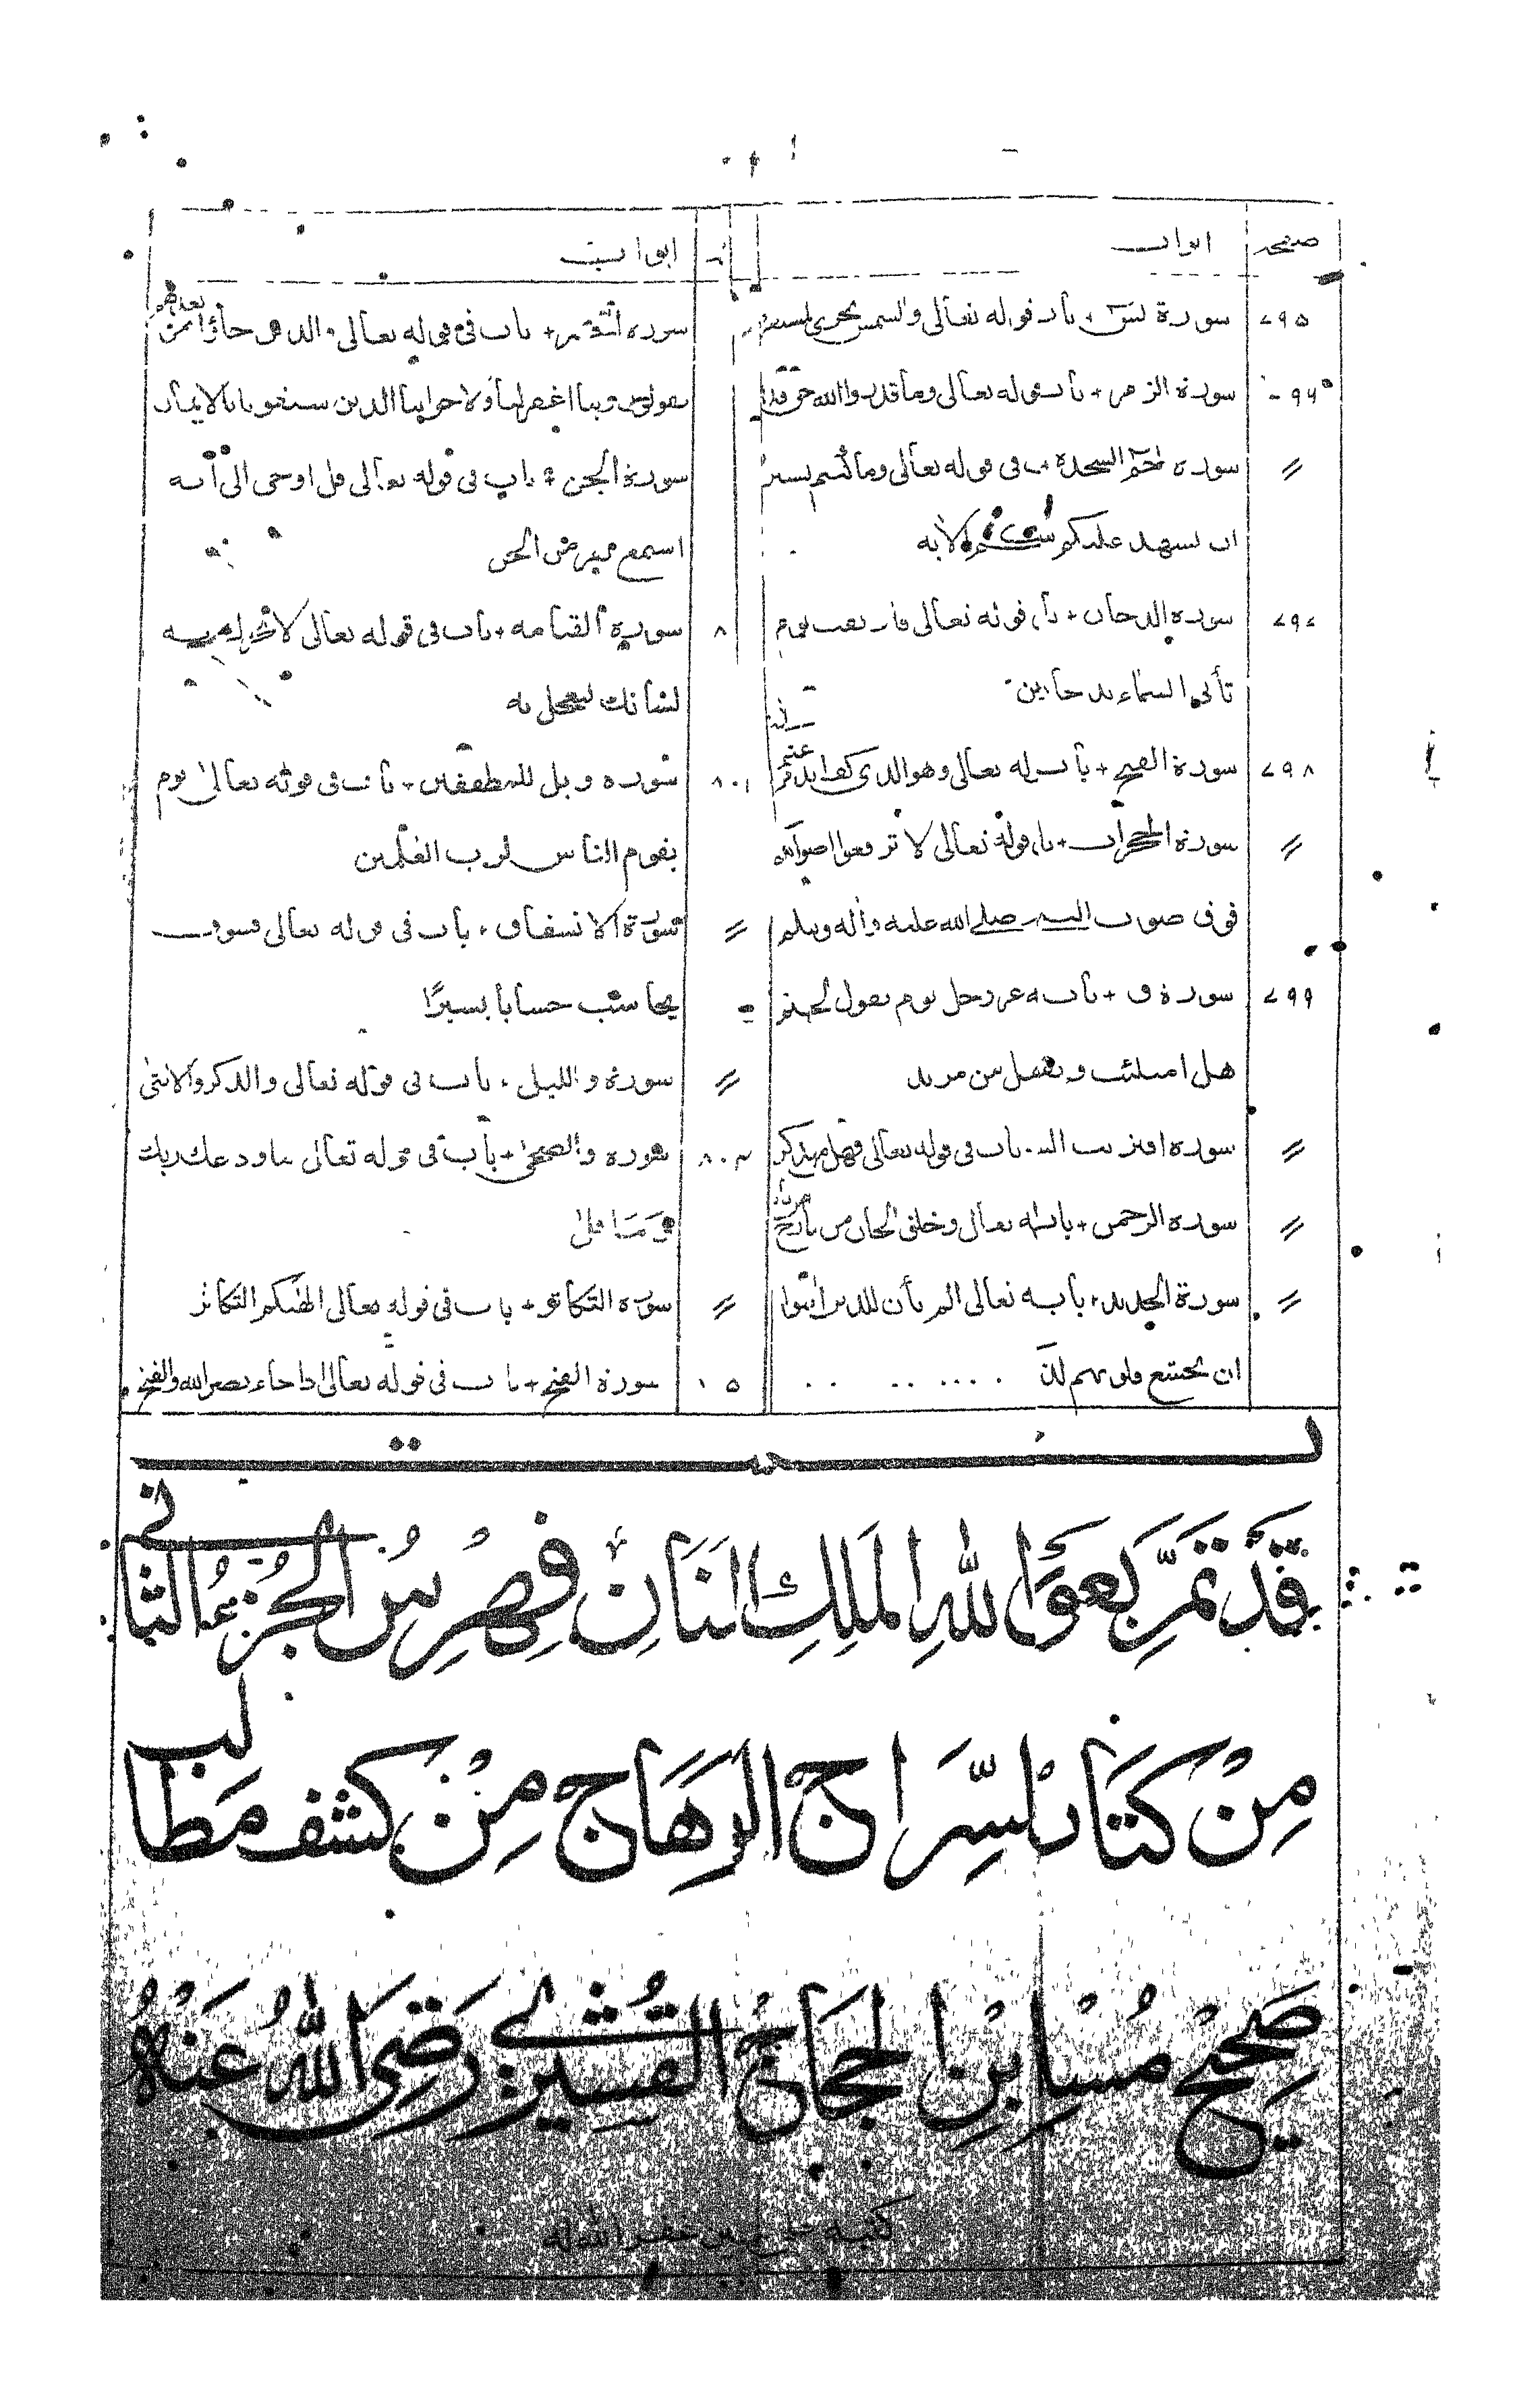 صفحه ابواب
٧٩٥ سورة يس + باب قوله تعالى والشمس تجري لمستقر
٧٩٦ سورة الزمر + باب قوله تعالى وما قدروا الله حق قدره
〃 سورة حم السجدة باب في قوله تعالى وما كنتم تستترون
ان يشهد عليكم سمعكم الاية
٧٩٧ سورة الدخان + باب قوله تعالى فارتقب يوم
تأتي السماء بدخان مبين
٧٩٨ سورة الفتح + باب قوله تعالى وهو الذي كف ايديهم عنكم
〃 سورة الحجرات + باب قوله تعالى لا ترفعوا اصواتكم
فوق صوت النبي صلى الله عليه واله وسلم
٧٩٩ سورة ق + باب قوله عز وجل يوم نقول لجهنم
هل امتلئت وتقول هل من مزيد
〃 سورة اقتربت الساعة باب في قوله تعالى فهل من مدكر
〃 سورة الرحمن + باب قوله تعالى وخلق الجان من مارج من نار
〃 سورة الحديد + باب قوله تعالى الم يأن للذين امنوا
ان تخشع قلوبهم لذكر
ابواب
سورة الحشر + باب في قوله تعالى والذين جاؤا من بعدهم
يقولون ربنا اغفر لنا ولاخواننا الذين سبقونا بالايمان
سورة الجن + باب في قوله تعالى قل اوحى الى انه
استمع نفر من الجن
سورة القيامه + باب في قوله تعالى لا تحرك به
لسانك لتعجل به
٨٠١ سورة ويل للمطففين + باب في قوله تعالى يوم
يقوم الناس لرب العلمين
〃 سورة الانشقاق + باب في قوله تعالى فسوف
يحاسب حسابا يسيرًا
〃 سورة والليل + باب في قوله تعالى والذكر والانثى
سورة والضحى + باب في قوله تعالى ما ودعك ربك
وما قلى
〃 سورة التكاثر + باب في قوله تعالى الهٰكم التكاثر
سورة الفتح + باب في قوله تعالى اذا جاء نصر الله والفتح
تمت
قد تم بعون الله الملك المنان فهرس الجزء الثاني
من كتاب السراج الوهاج من كشف مطالب
صحيح مسلم بن الحجاج القشيري رضي الله عنه
كتبه غفر الله له